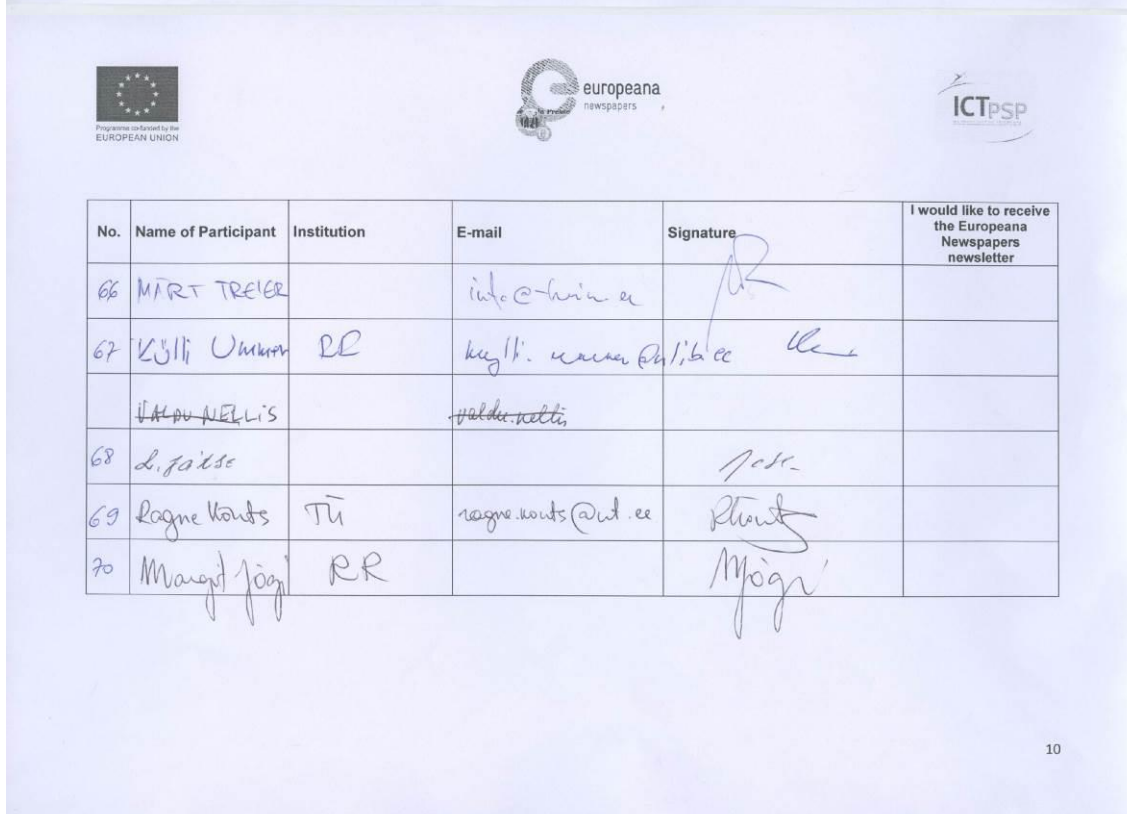 Programme co-funded by the
EUROPEAN UNION
europeana
newspapers
ICTPSP
No. Name of Participant Institution E-mail Signature I would like to receive
the Europeana
Newspapers
newsletter
66 MÄRT TREIER
67 Külli RR
VALDU NELLIS valdu.nellis
68
69 Ragne Kouts TÜ ragne.kouts@ut.ee RKouts
70 Margit Jõgi RR MJõgi
10